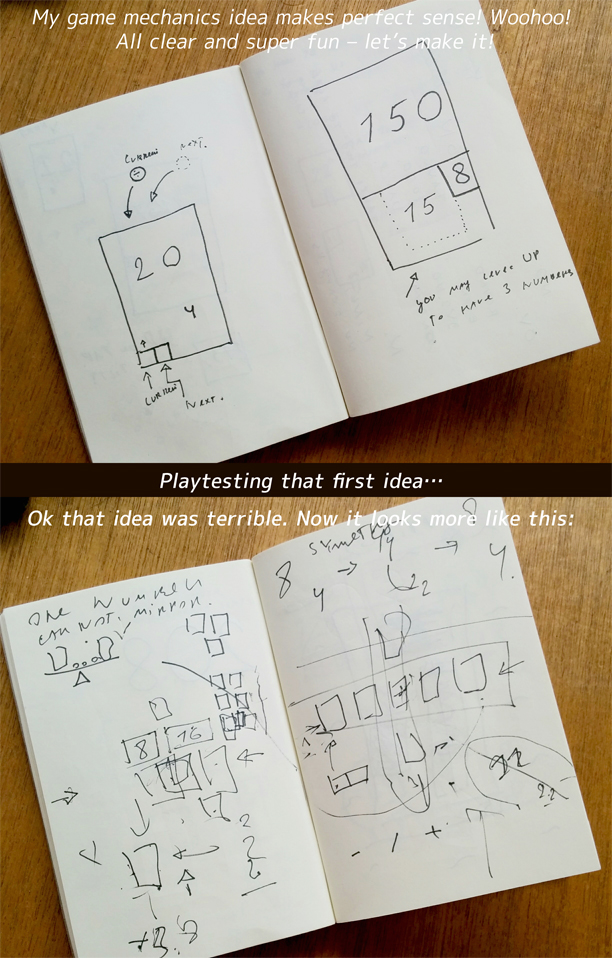 My game mechanics idea makes perfect sense! Woohoo!
All clear and super fun – let's make it!
Current
Next.
20
4
Current
Next.
150
8
15
you may level up
to have 3 numbers
Playtesting that first idea…
Ok that idea was terrible. Now it looks more like this:
one number
can not mirror.
8 16
8
8
4
4
2
4.
22
- / +